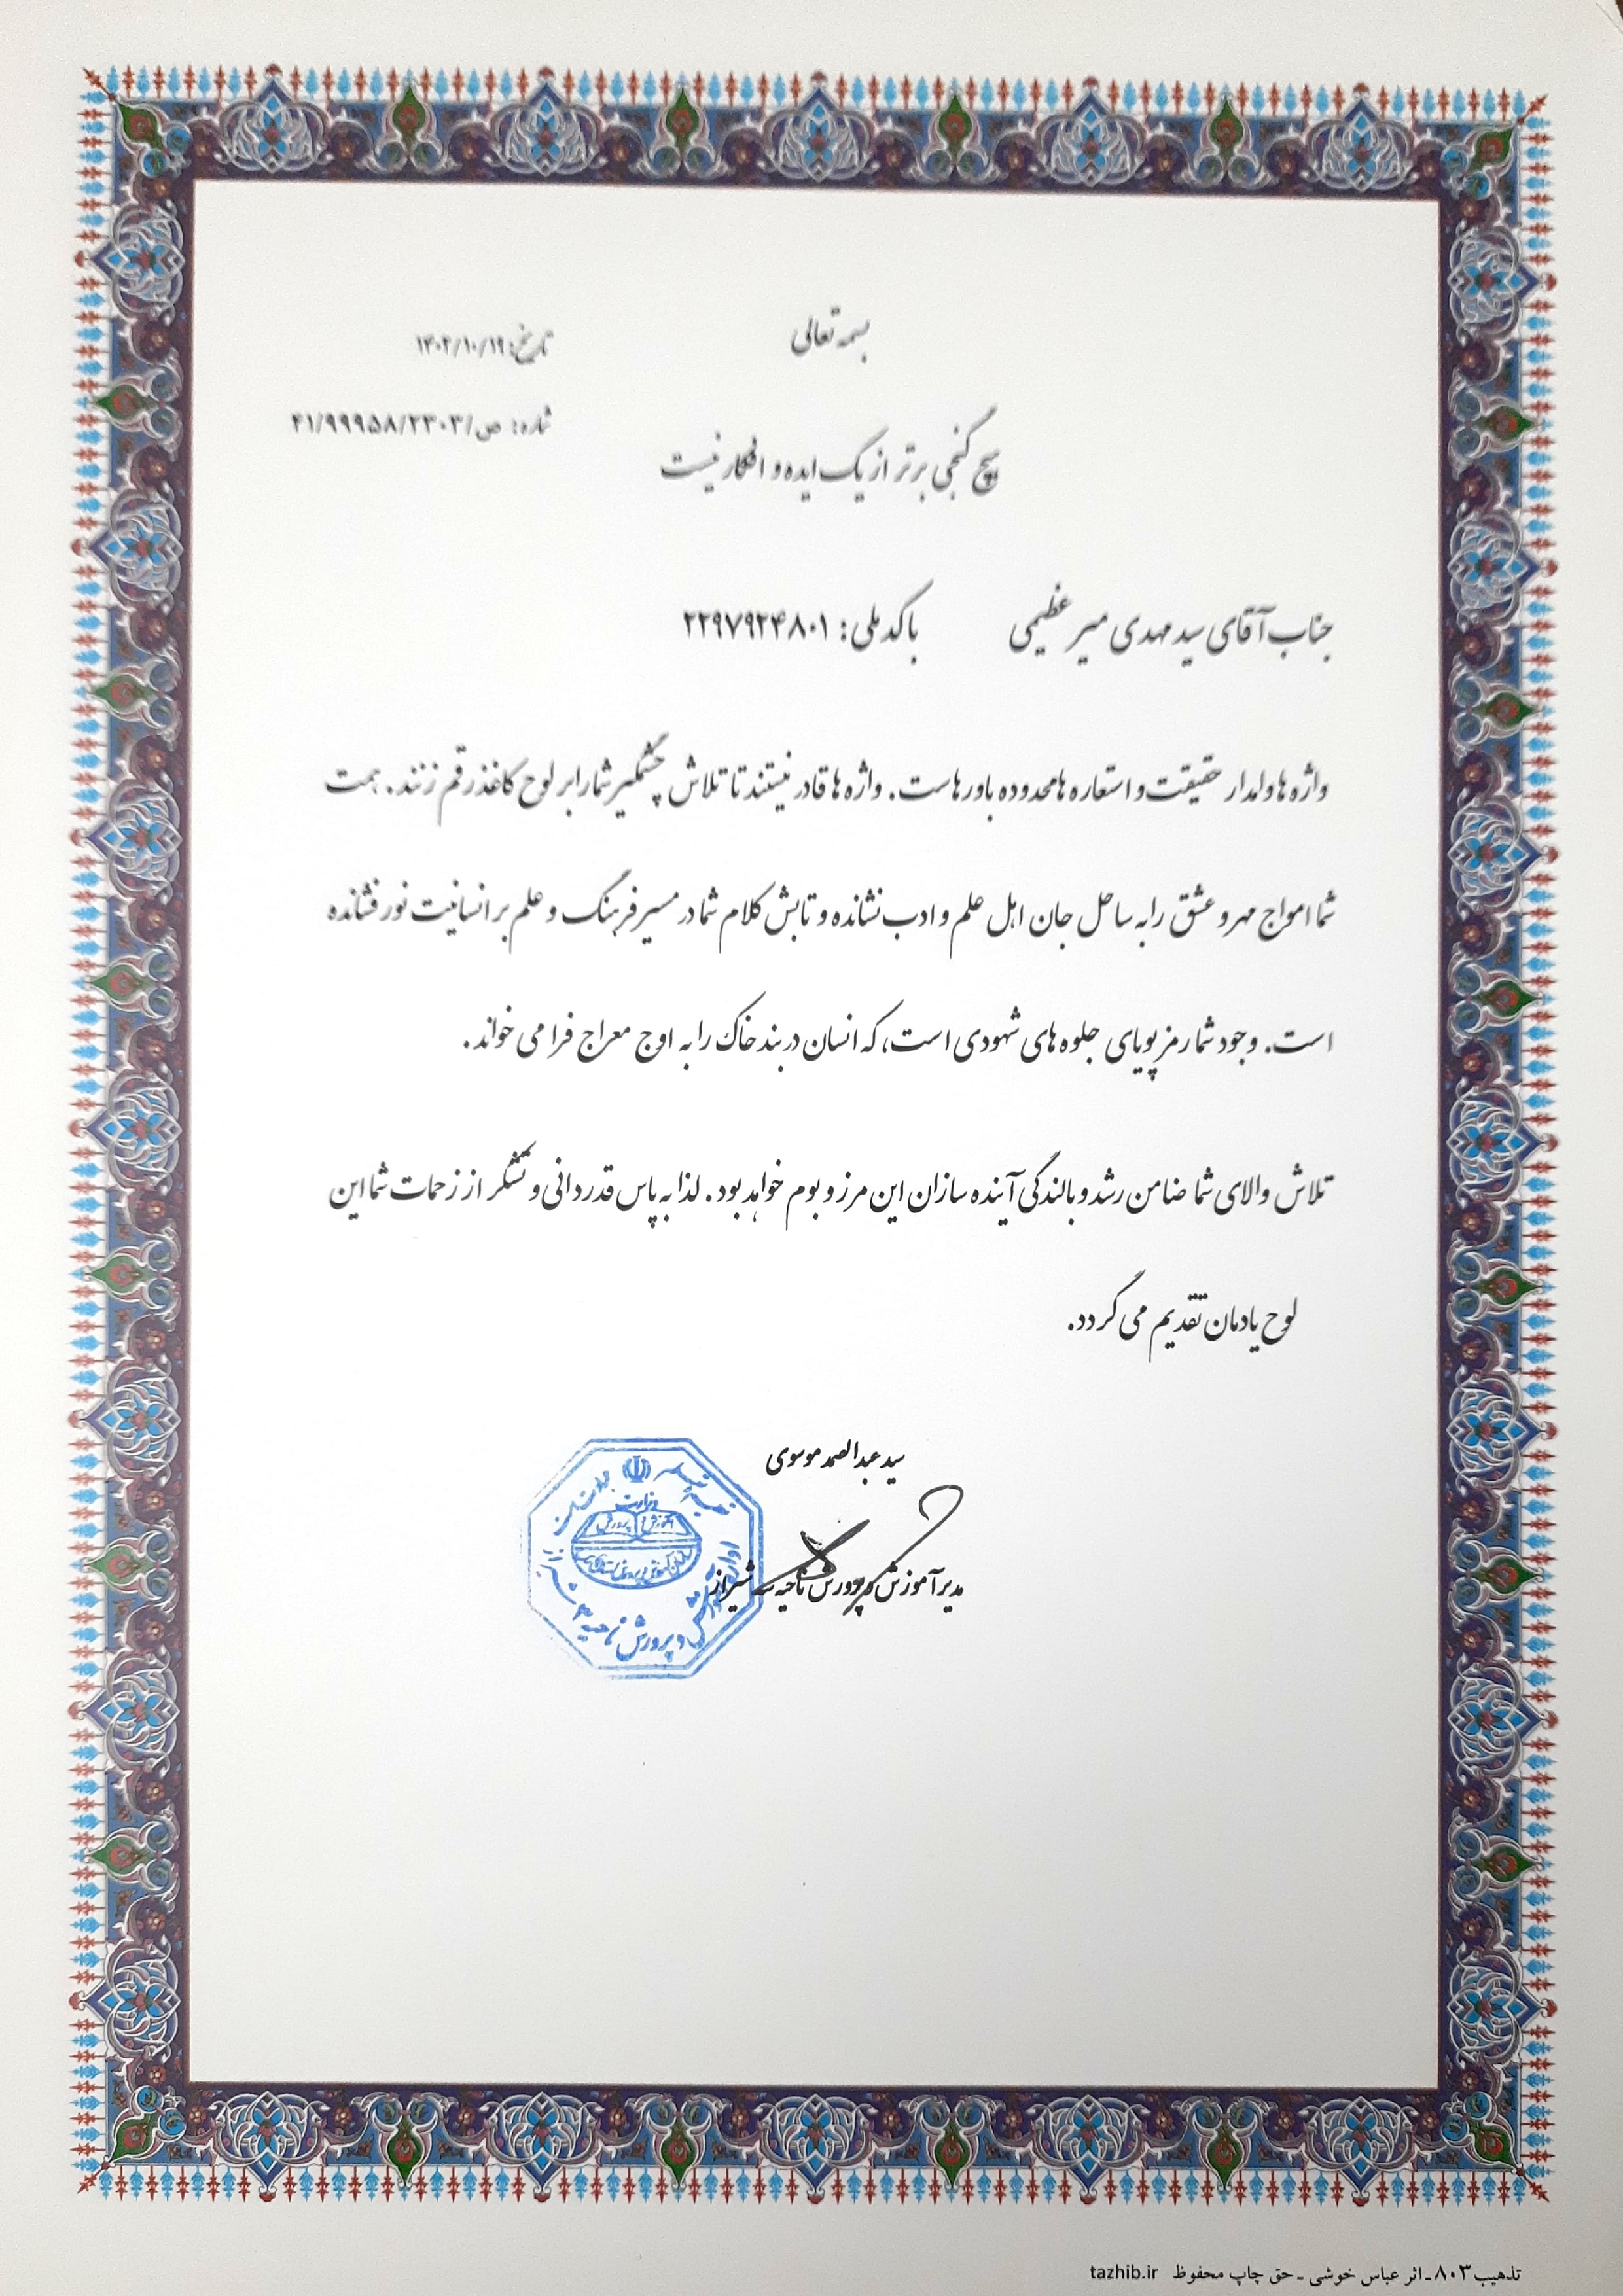 بسمه تعالی
تاریخ: ۱۴۰۲/۱۰/۱۹
شماره: ص/۴۱/۹۹۹۵۸/۲۳۰۳
هیچ گنجی برتر از یک ایده و افکار نیست
جناب آقای سید مهدی میر عظیمی با کد ملی: ۲۲۹۷۹۲۴۸۰۱
واژه ها ولمدار حقیقت و استعاره ها محدوده باور هاست. واژه ها قادر نیستند تا تلاش چشمگیر شما را بر لوح کاغذ رقم زنند. همت
شما امواج مهر و عشق را به ساحل جان اهل علم و ادب نشانده و تابش کلام شما در مسیر فرهنگ و علم بر انسانیت نور فشانده
است. وجود شما رمز پویای جلوه های شهودی است، که انسان در بند خاک را به اوج معراج فرا می خواند.
تلاش والای شما ضامن رشد و بالندگی آینده سازان این مرز و بوم خواهد بود. لذا به پاس قدردانی و تشکر از زحمات شما این
لوح یادمان تقدیم می گردد.
سید عبدالصمد موسوی
مدیر آموزش و پرورش ناحیه سه شیراز
وزارت
آموزش و پرورش
اداره آموزش و پرورش ناحیه ۳ شیراز
تذهیب ۸۰۳ـ اثر عباس خوشی ـ حق چاپ محفوظ tazhib.ir